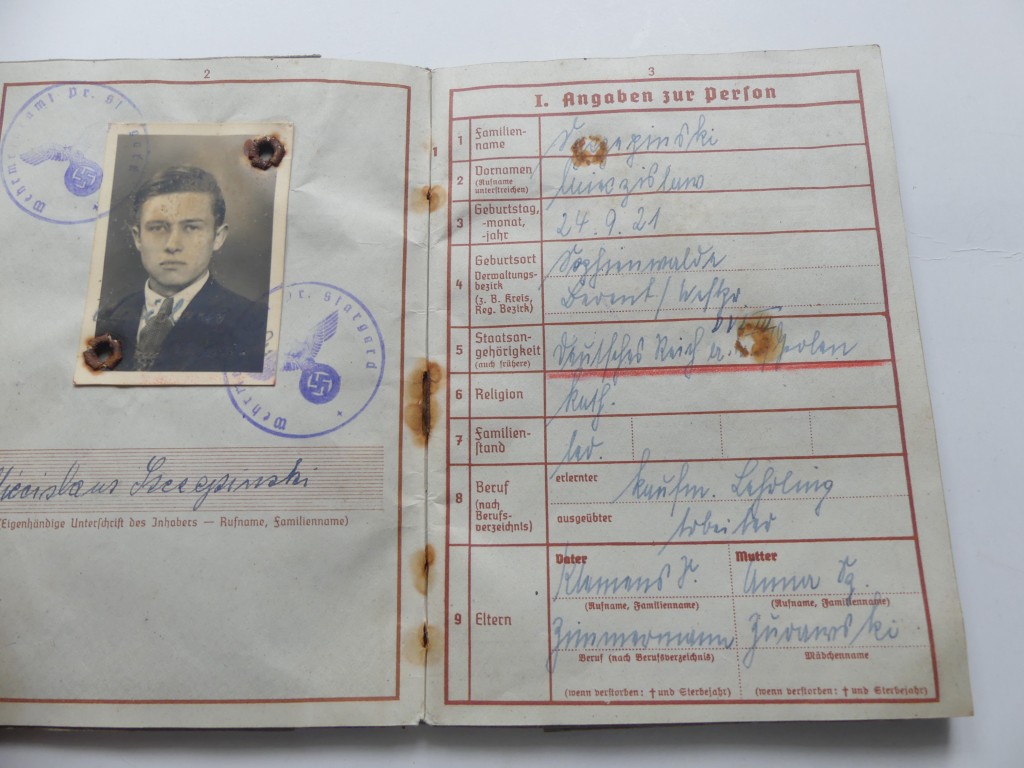 2
Wehrm amt Pr. St gard
Wehrm Pr. Stargard
Szczepinski
(Eigenhändige Unterschrift des Inhabers — Rufname, Familienname)
3
I. Angaben zur Person
1 Familienname
2 Vornamen (Rufname unterstreichen) Mieczislaw
3 Geburtstag, -monat, -jahr 24.9.21
4 Geburtsort Sophienwalde
Verwaltungsbezirk (z. B. Kreis, Reg. Bezirk) Berent/Westpr.
5 Staatsangehörigkeit (auch frühere) Deutsches Reich Polen
6 Religion kath.
7 Familienstand led.
8 Beruf (nach Berufsverzeichnis) erlernter kaufm. Lehrling
ausgeübter Arbeiter
9 Eltern
Vater Mutter
Klemens S. Anna Sz.
(Rufname, Familienname) (Rufname, Familienname)
Zimmermann Zurawski
Beruf (nach Berufsverzeichnis) Mädchenname
(wenn verstorben: † und Sterbejahr) (wenn verstorben: † und Sterbejahr)